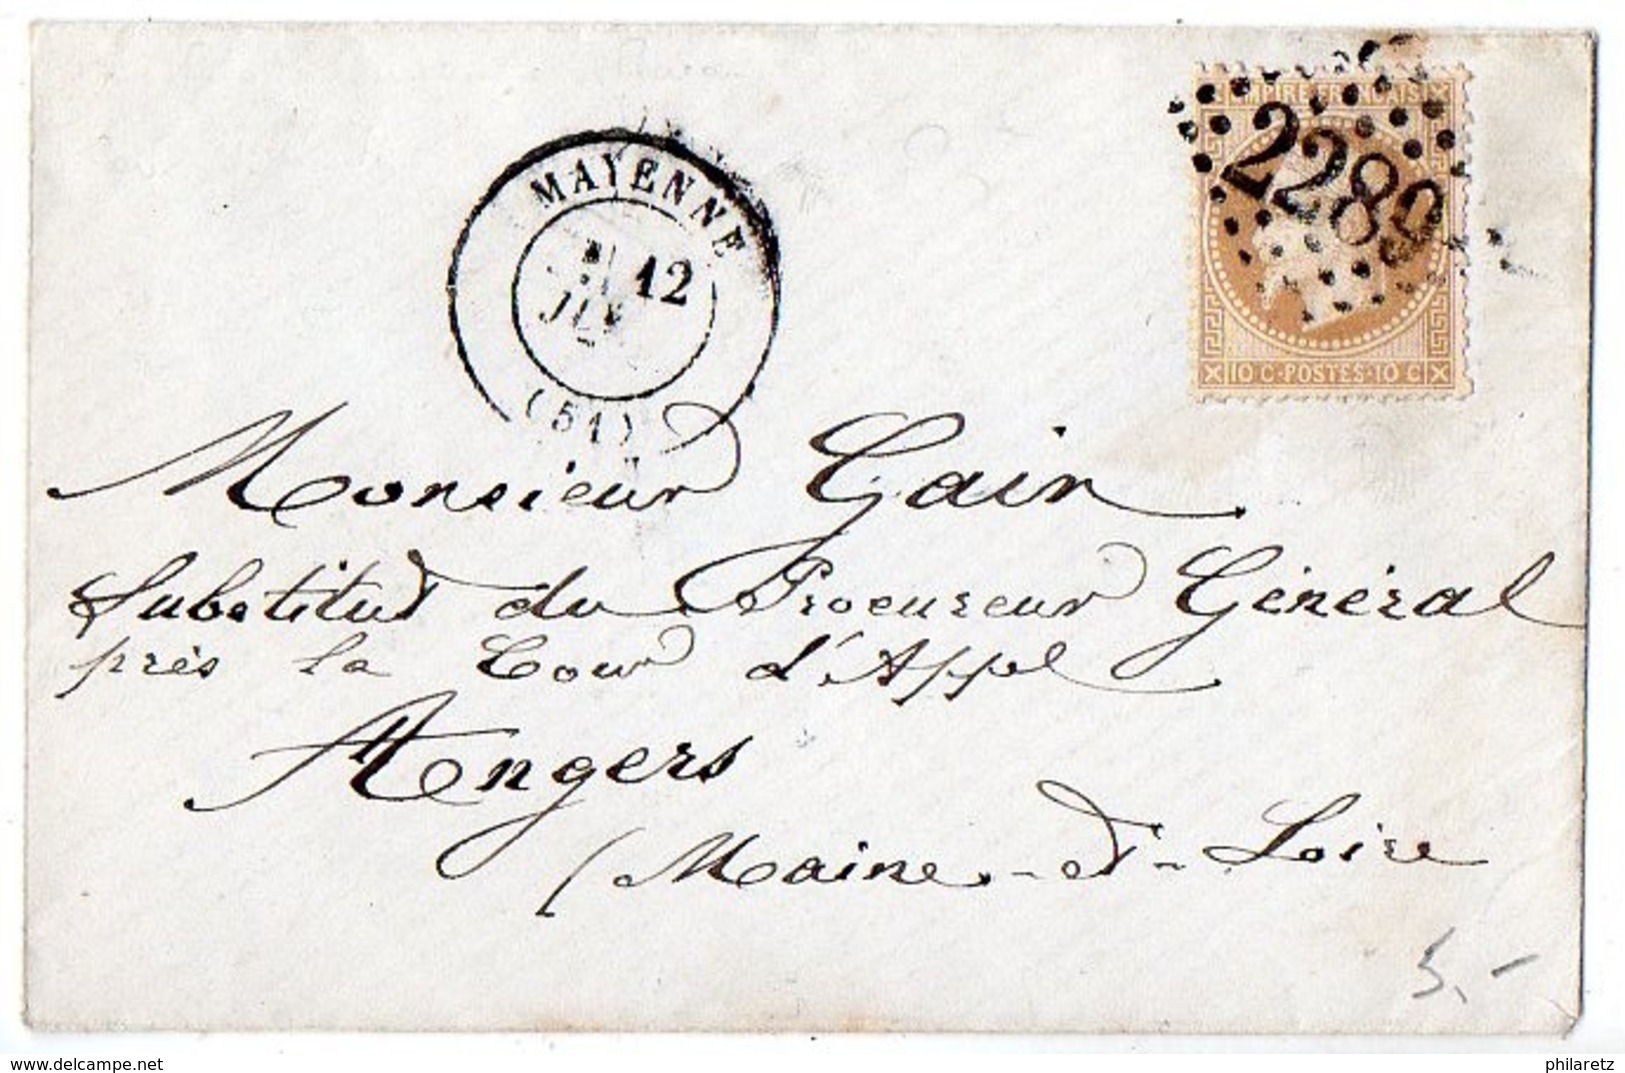 MAYENNE
12
(51)
EMPIRE FRANCAIS
2289
10 C·POSTES·10 C
Monsieur Gain
Substitut du Procureur Général
près la Cour d'Appel
Angers
(Maine-et-Loire
5,-
www.delcampe.net
philaretz